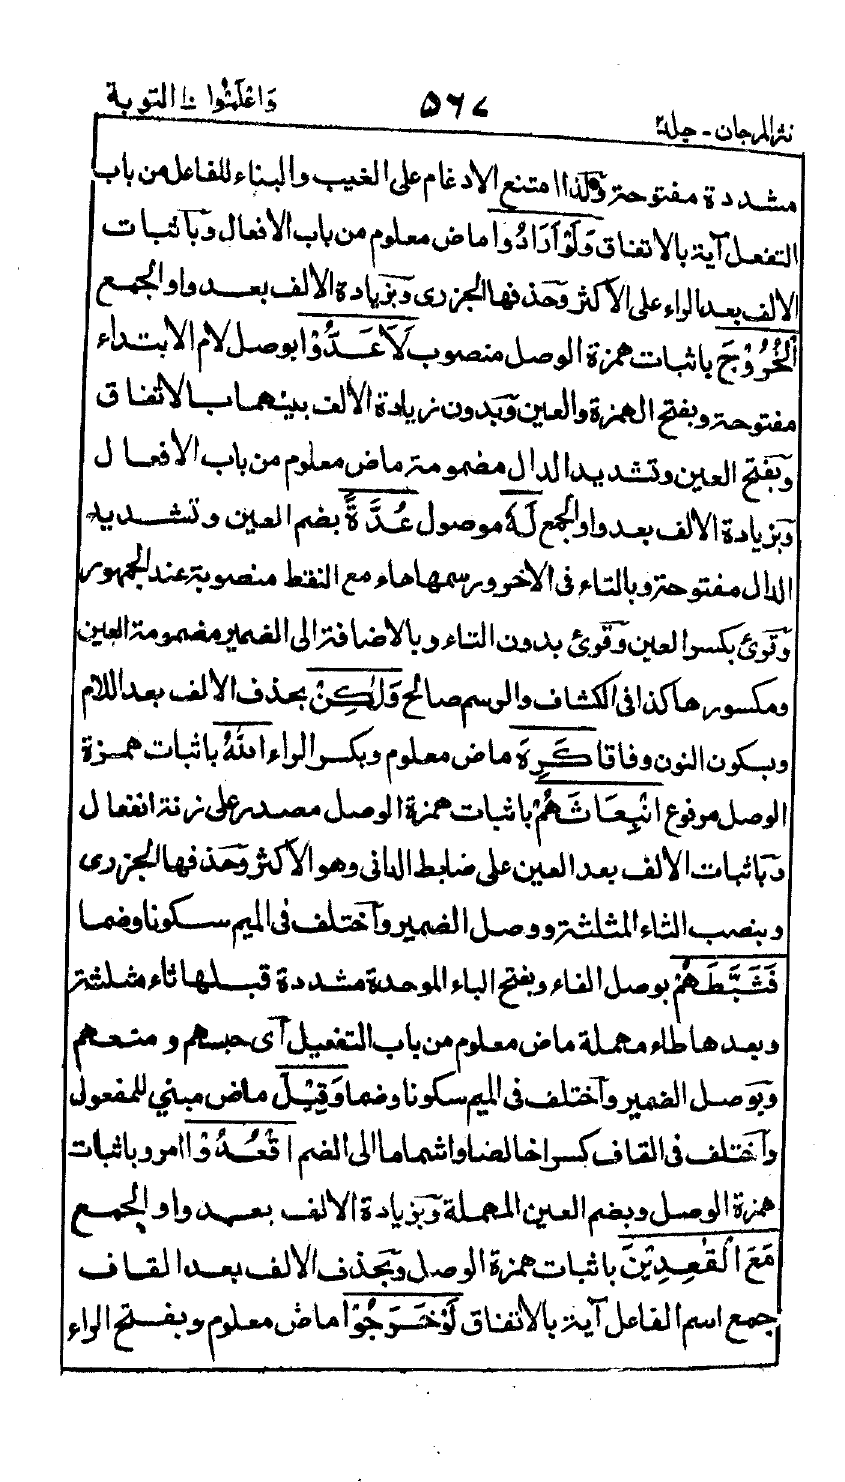 نثر المرجان - جلد٢
٥٦٧
وَاعْلَمُوا ١٠ التوبة
مشددة مفتوحة ولذا امتنع الادغام على الغيب والبناء للفاعل من باب
التفعل آية بالاتفاق وَلَوْ اَرَادُوا ماض معلوم من باب الافعال وباثبات
الالف بعد الراء على الأكثر وحذفها الجزرى وبزيادة الالف بعد واو الجمع
اَلْخُرُوْجَ باثبات همزة الوصل منصوب لَاَعَدُّوْا بوصل لام الابتداء
مفتوحة وبفتح الهمزة والعين وبدون زيادة الألف بينهما بالاتفاق
وبفتح العين وتشديد الدال مضمومة ماض معلوم من باب الافعال
وبزيادة الالف بعد واو الجمع لَهٗ موصول عُدَّةً بضم العين وتشديد
الدال مفتوحة وبالتاء فى الاخر ورسمها هاء مع النقط منصوبة عند الجمهور
وقرئ بكسر العين وقرئ بدون التاء وبالاضافة الى الضمير مضمومة العين
ومكسورها كذا فى الكشاف والرسم صالح وَلٰكِنْ بحذف الالف بعد اللام
وبسكون النون وفاقا كَرِهَ ماض معلوم وبكسر الراء اللهُ باثبات همزة
الوصل مرفوع انْبِعَاثَهُمْ باثبات همزة الوصل مصدر على زنة انفعال
وباثبات الألف بعد العين على ضابط الدانى وهو الأكثر وحذفها الجزرى
وبنصب الثاء المثلثة ووصل الضمير واختلف فى الميم سكونا وضما
فَثَبَّطَهُمْ بوصل الفاء وبفتح الباء الموحدة مشددة قبلها ثاء مثلثة
وبعدها طاء مهملة ماض معلوم من باب التفعيل آى حبسهم ومنعهم
وبوصل الضمير واختلف فى الميم سكونا وضما وَقِيْلَ ماض مبني للمفعول
واختلف فى القاف كسرا خالصا واشماما الى الضم اقْعُدُوْا امر وباثبات
همزة الوصل وبضم العين المهملة وبزيادة الالف بعد واو الجمع
مَعَ الْقٰعِدِيْنَ باثبات همزة الوصل وبحذف الالف بعد القاف
جمع اسم الفاعل آية بالاتفاق لَوْ خَرَجُوْا ماض معلوم وبفتح الراء